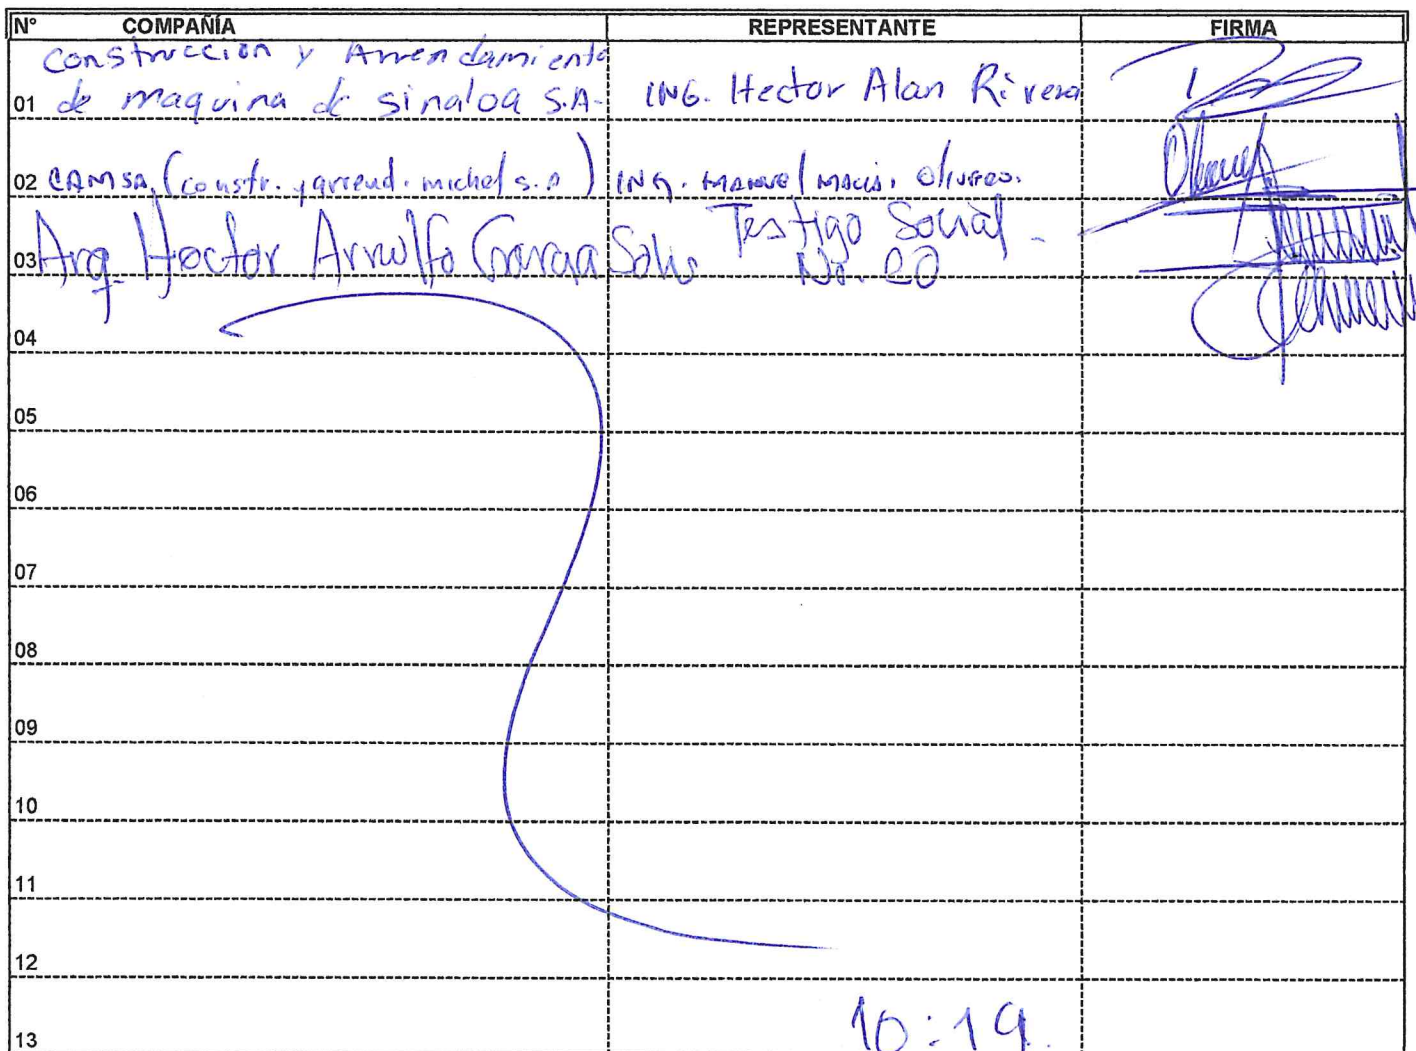 N° COMPAÑÍA REPRESENTANTE FIRMA
Construccion y Arrendamiento
01 de maquina de sinaloa S.A. ING. Hector Alan Rivera
02 CAMSA, (constr. y arrend. michel s.a) ING. Manuel Olivero.
03 Arq. Hector Arnulfo Garcia Solis Testigo Social -
No. 20
04
05
06
07
08
09
10
11
12
13 10:19.